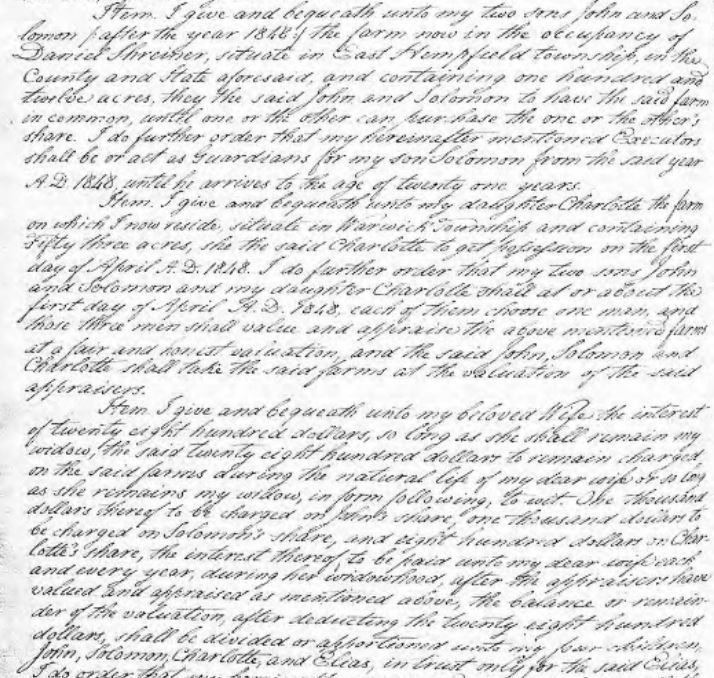 Item. I give and bequeath unto my two sons John and So-
lomon (after the year 1848) the farm now in the occupancy of
Daniel Shreiner, situate in East Hempfield township, in the
County and State aforesaid, and containing one hundred and
twelve acres, they the said John and Solomon to have the said farm
in common, until one or the other can purchase the one or the other's
share. I do further order that my hereinafter mentioned Executors
shall be or act as Guardians for my son Solomon from the said year
A.D. 1848, until he arrives to the age of twenty one years.
Item. I give and bequeath unto my daughter Charlotte the farm
on which I now reside, situate in Warwick Township and containing
Fifty three acres, she the said Charlotte to get possession on the first
day of April A.D. 1848. I do further order that my two sons John
and Solomon and my daughter Charlotte shall at or about the
first day of April A.D. 1848, each of them choose one man, and
those three men shall value and appraise the above mentioned farms
at a fair and honest valuation, and the said John, Solomon and
Charlotte shall take the said farms at the valuation of the said
appraisers.
Item. I give and bequeath unto my beloved Wife the interest
of twenty eight hundred dollars, so long as she shall remain my
widow, the said twenty eight hundred dollars to remain charged
on the said farms during the natural life of my dear wife or so long
as she remains my widow, in form following, to wit. One thousand
dollars thereof to be charged on John's share, one thousand dollars to
be charged on Solomon's share, and eight hundred dollars on Char-
lotte's share, the interest thereof to be paid unto my dear wife each
and every year, during her widowhood, after the appraisers have
valued and appraised as mentioned above, the balance or remain-
der of the valuation, after deducting the twenty eight hundred
dollars, shall be divided or apportioned unto my four children,
John, Solomon, Charlotte, and Elias, in trust only for the said Elias,
I do order that my